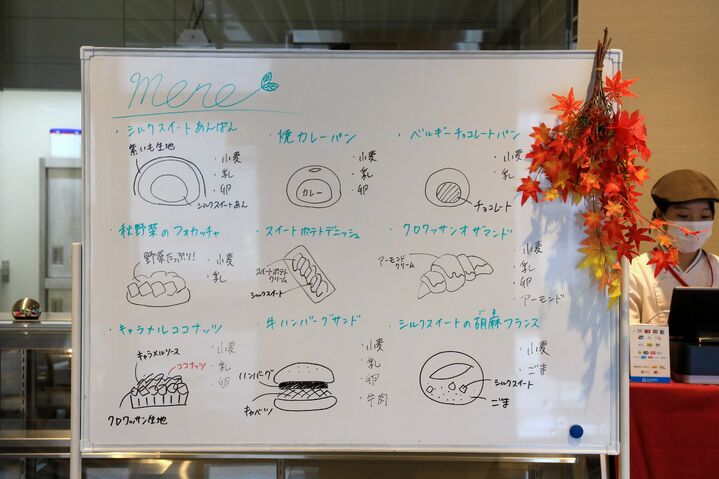 menu
・シルクスイートあんぱん
紫いも生地
シルクスイートあん
・小麦
・乳
・卵
・焼カレーパン
カレー
・小麦
・乳
・卵
・ベルギーチョコレートパン
チョコレート
・小麦
・乳
・秋野菜のフォカッチャ
野菜たっぷり!
・小麦
・乳
・スイートポテトデニッシュ
スイートポテト
クリーム
シルクスイート
・クロワッサンオザマンド
アーモンド
クリーム
・小麦
・乳
・卵
・アーモンド
・キャラメルココナッツ
キャラメルソース
ココナッツ
クロワッサン生地
・小麦
・乳
・卵
・牛ハンバーグサンド
ハンバーグ
キャベツ
・小麦
・乳
・卵
・牛肉
・シルクスイートの胡麻フランス
ごま
シルクスイート
ごま
・小麦
・ごま